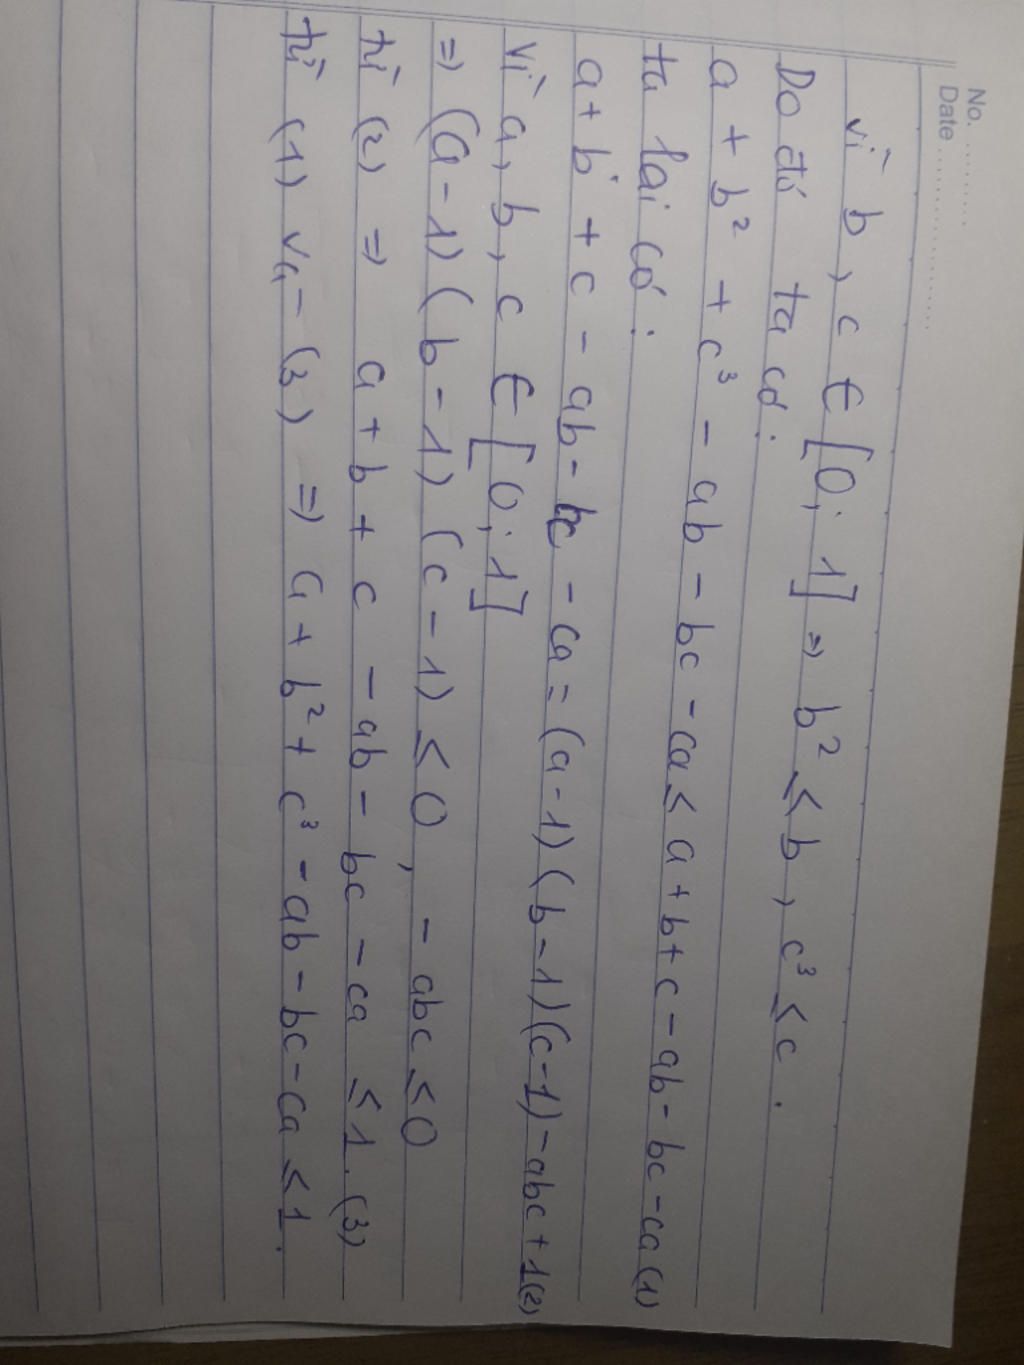 No. ..........
Date ....................
vì b, c ∈ [0; 1] ⇒ b² ≤ b, c³ ≤ c.
Do đó ta có:
a + b² + c³ - ab - bc - ca ≤ a + b + c - ab - bc - ca (1)
ta lại có:
a + b + c - ab - bc - ca = (a - 1)(b - 1)(c - 1) - abc + 1 (2)
Vì a, b, c ∈ [0; 1]
⇒ (a - 1)(b - 1)(c - 1) ≤ 0, - abc ≤ 0
từ (2) ⇒ a + b + c - ab - bc - ca ≤ 1. (3)
từ (1) và (3) ⇒ a + b² + c³ - ab - bc - ca ≤ 1.